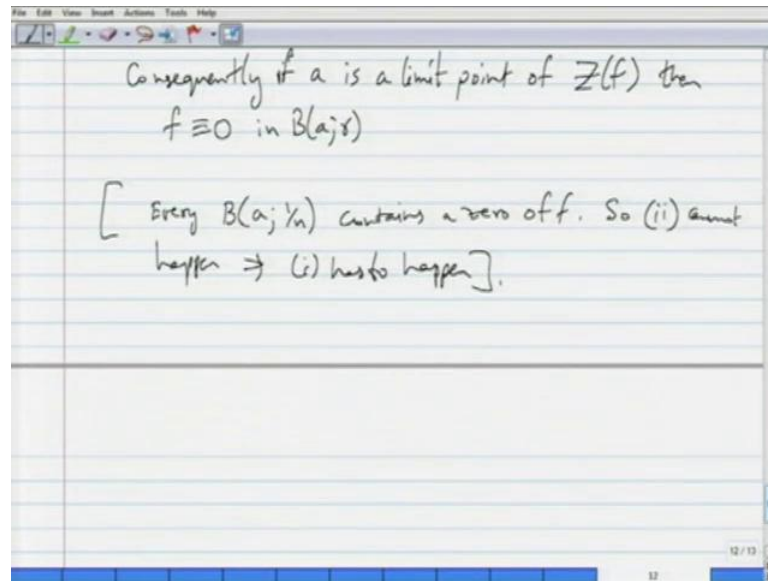 File Edit View Insert Actions Tools Help
Consequently if a is a limit point of Z(f) then
f ≡ 0 in B(a; r)
[ Every B(a; 1/n) contains a zero of f. So (ii) cannot
happen ⇒ (i) has to happen].
12 / 13
12